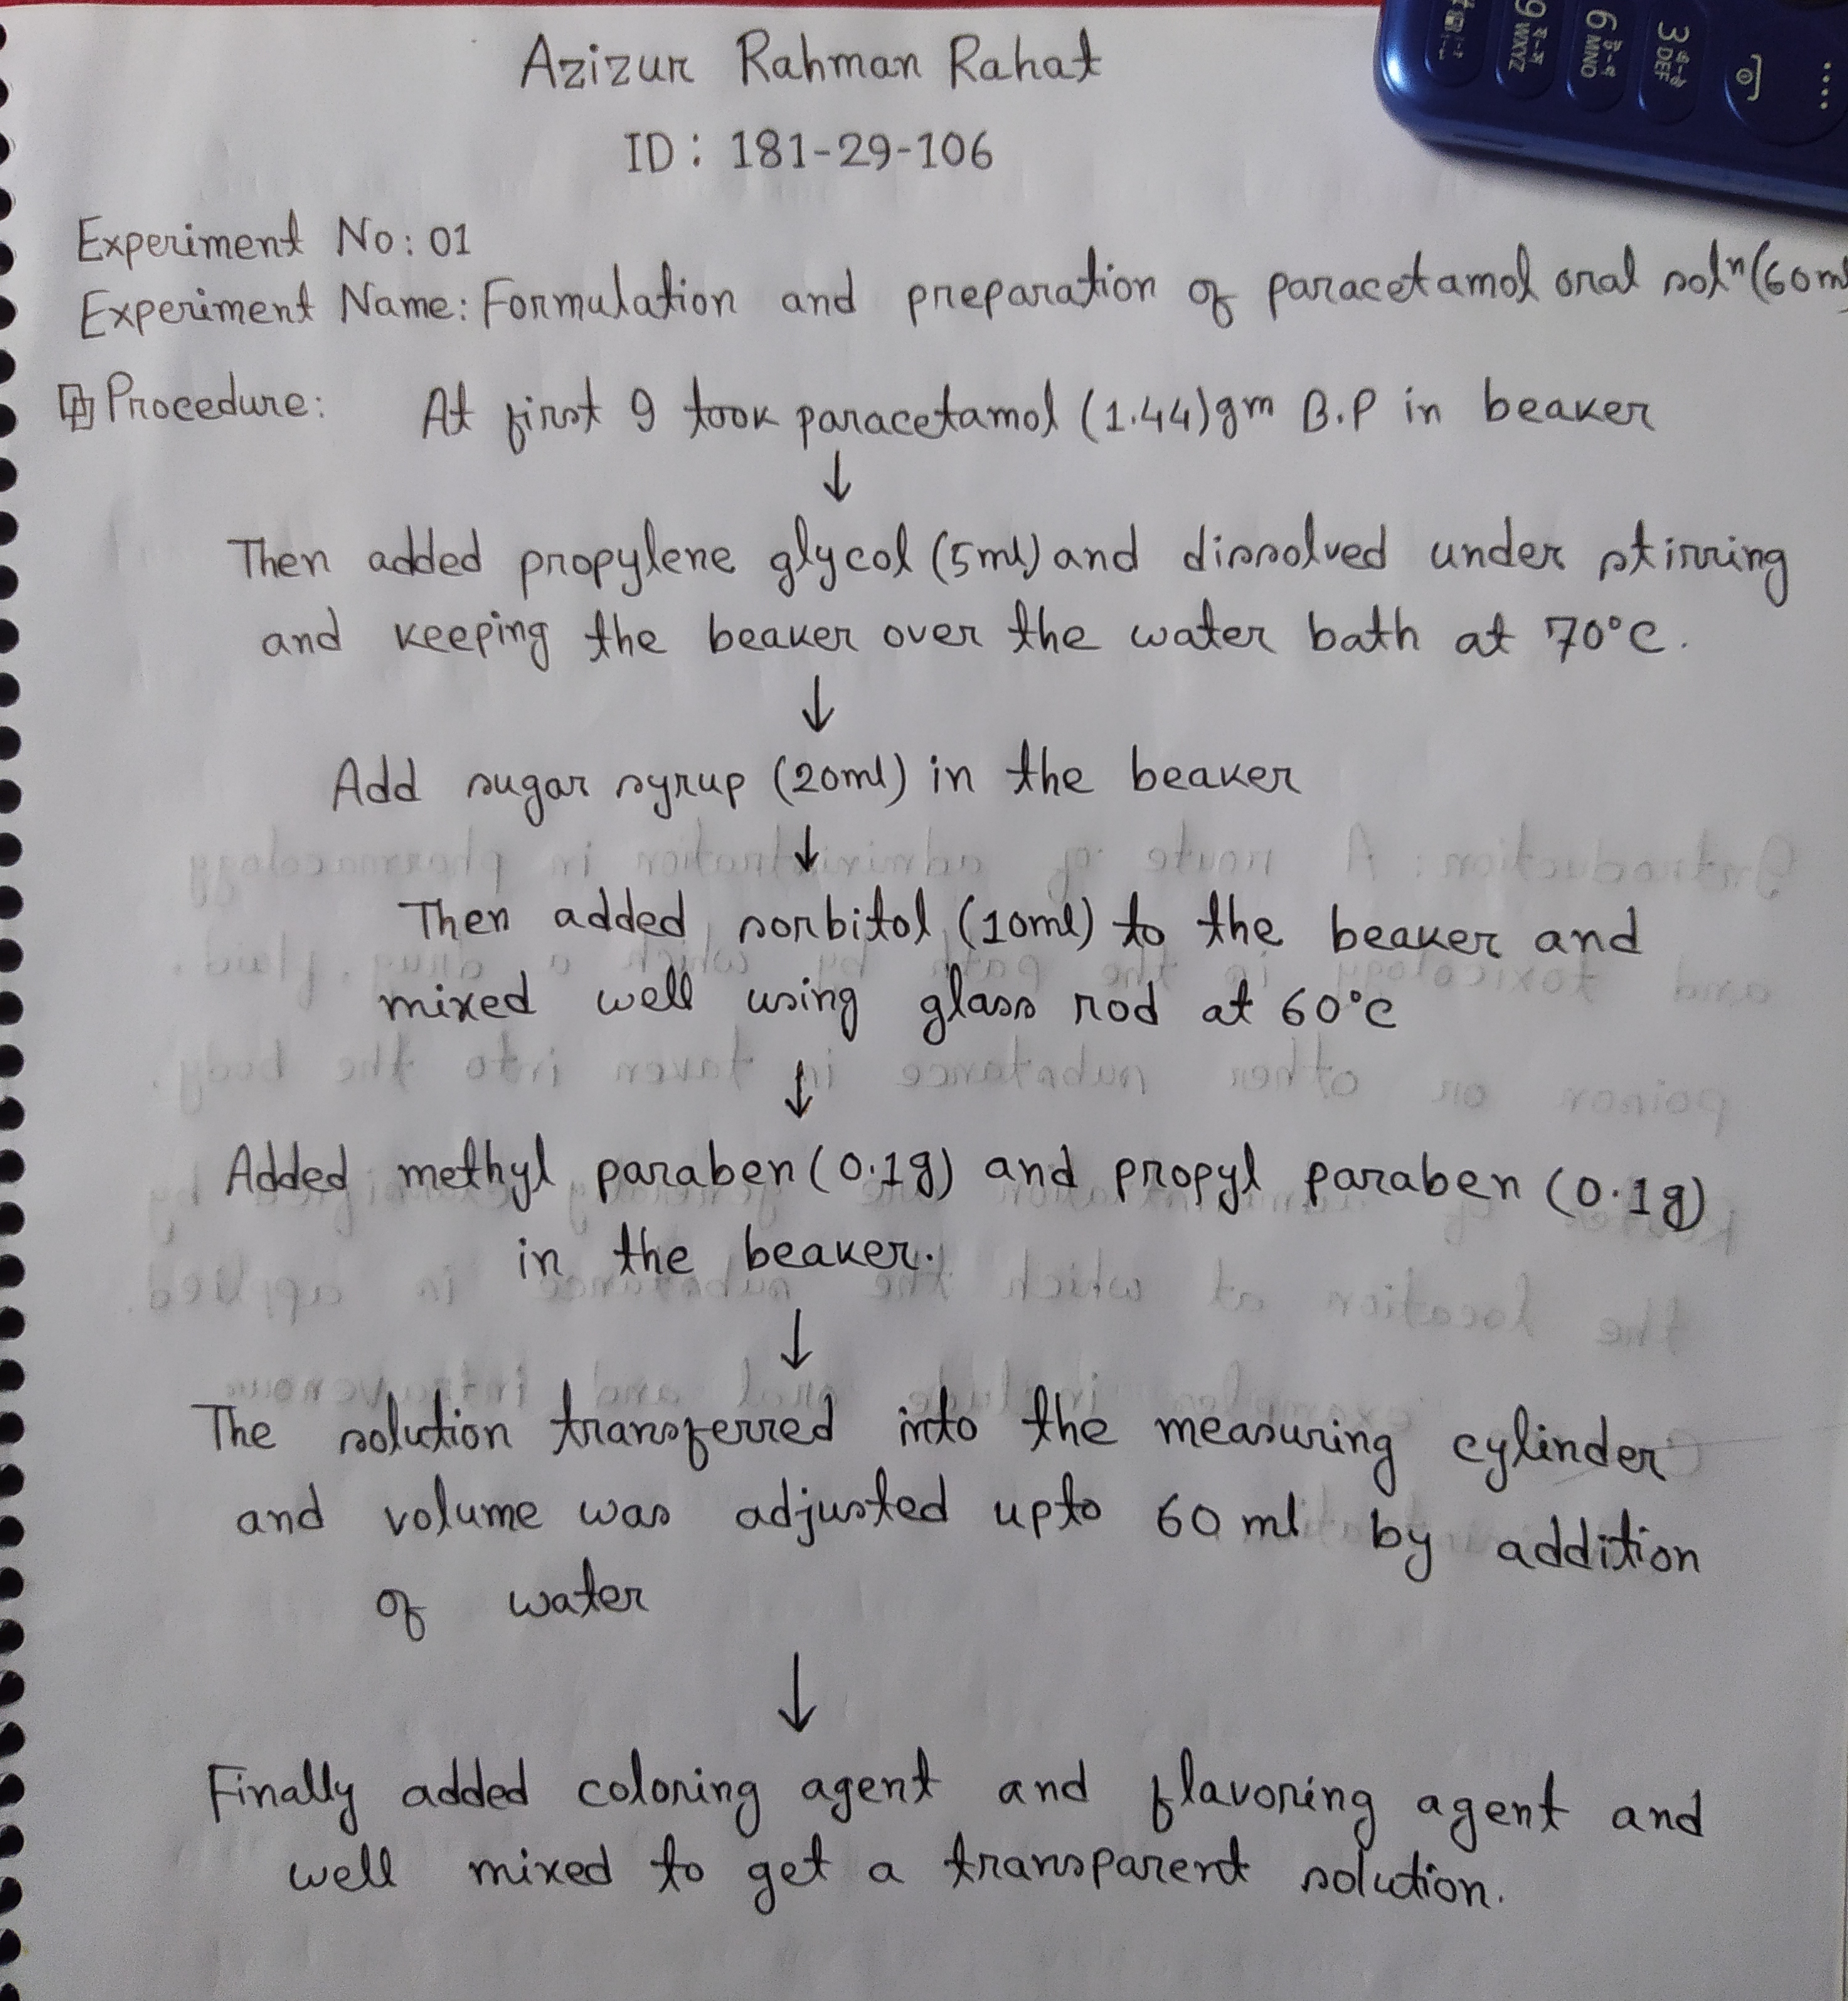 Azizur Rahman Rahat
ID: 181-29-106
Experiment No: 01
Experiment Name: Formulation and preparation of paracetamol oral solⁿ (60ml
Procedure: At first I took paracetamol (1.44)gm B.P in beaker
↓
Then added propylene glycol (5ml) and dissolved under stirring
and keeping the beaker over the water bath at 70°C.
↓
Add sugar syrup (20ml) in the beaker
↓
Then added sorbitol (10ml) to the beaker and
mixed well using glass rod at 60°c
↓
Added methyl paraben (0.1g) and propyl paraben (0.1g)
in the beaker.
↓
The solution transferred into the measuring cylinder
and volume was adjusted upto 60 ml by addition
of water
↓
Finally added coloring agent and flavoring agent and
well mixed to get a transparent solution.
9 WXYZ
6 MNO
3 DEF